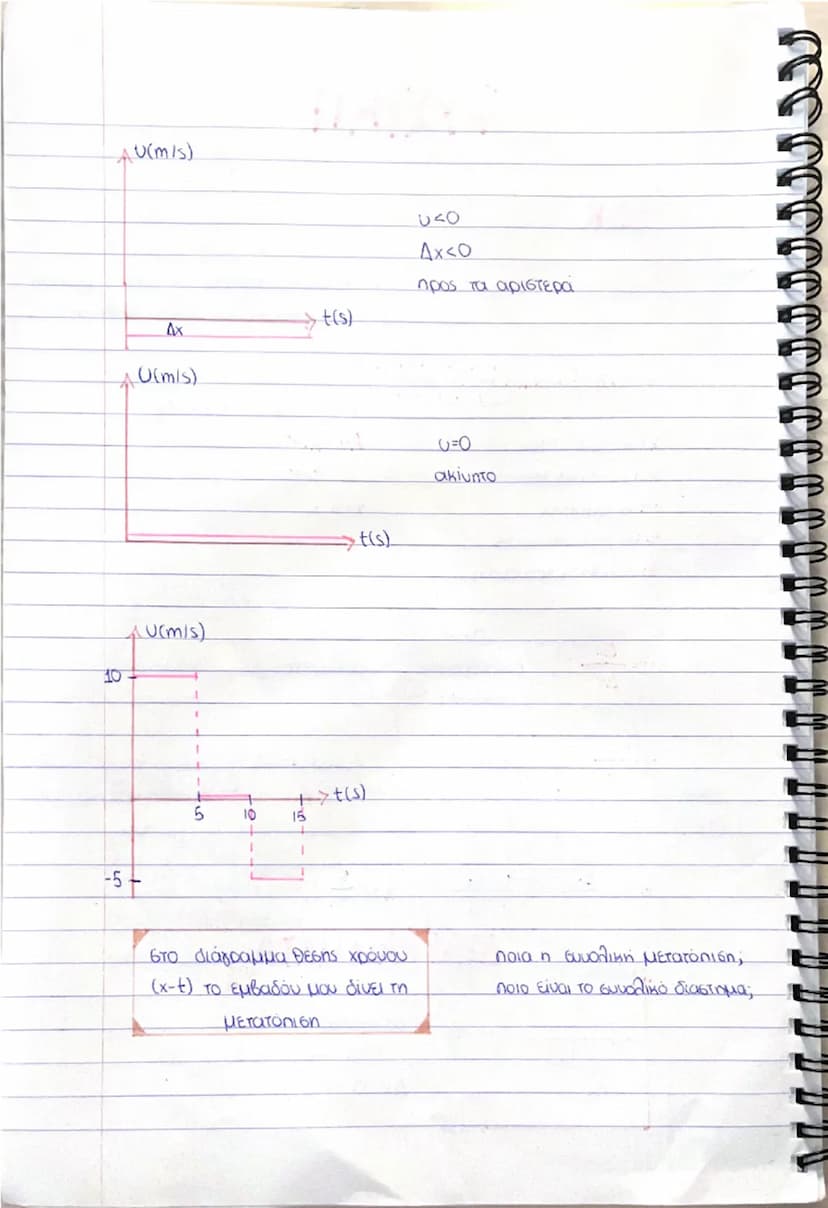 υ(m/s)
υ<0
Δx<0
προς τα αριστερά
t(s)
Δx
υ(m/s)
υ=0
ακίνητο
t(s)
υ(m/s)
10
t(s)
5 10 15
-5
στο διάγραμμα θέσης χρόνου
(x-t) το εμβαδόν μου δίνει τη
μετατόπιση
ποια η συνολική μετατόπιση;
ποιο είναι το συνολικό διάστημα;